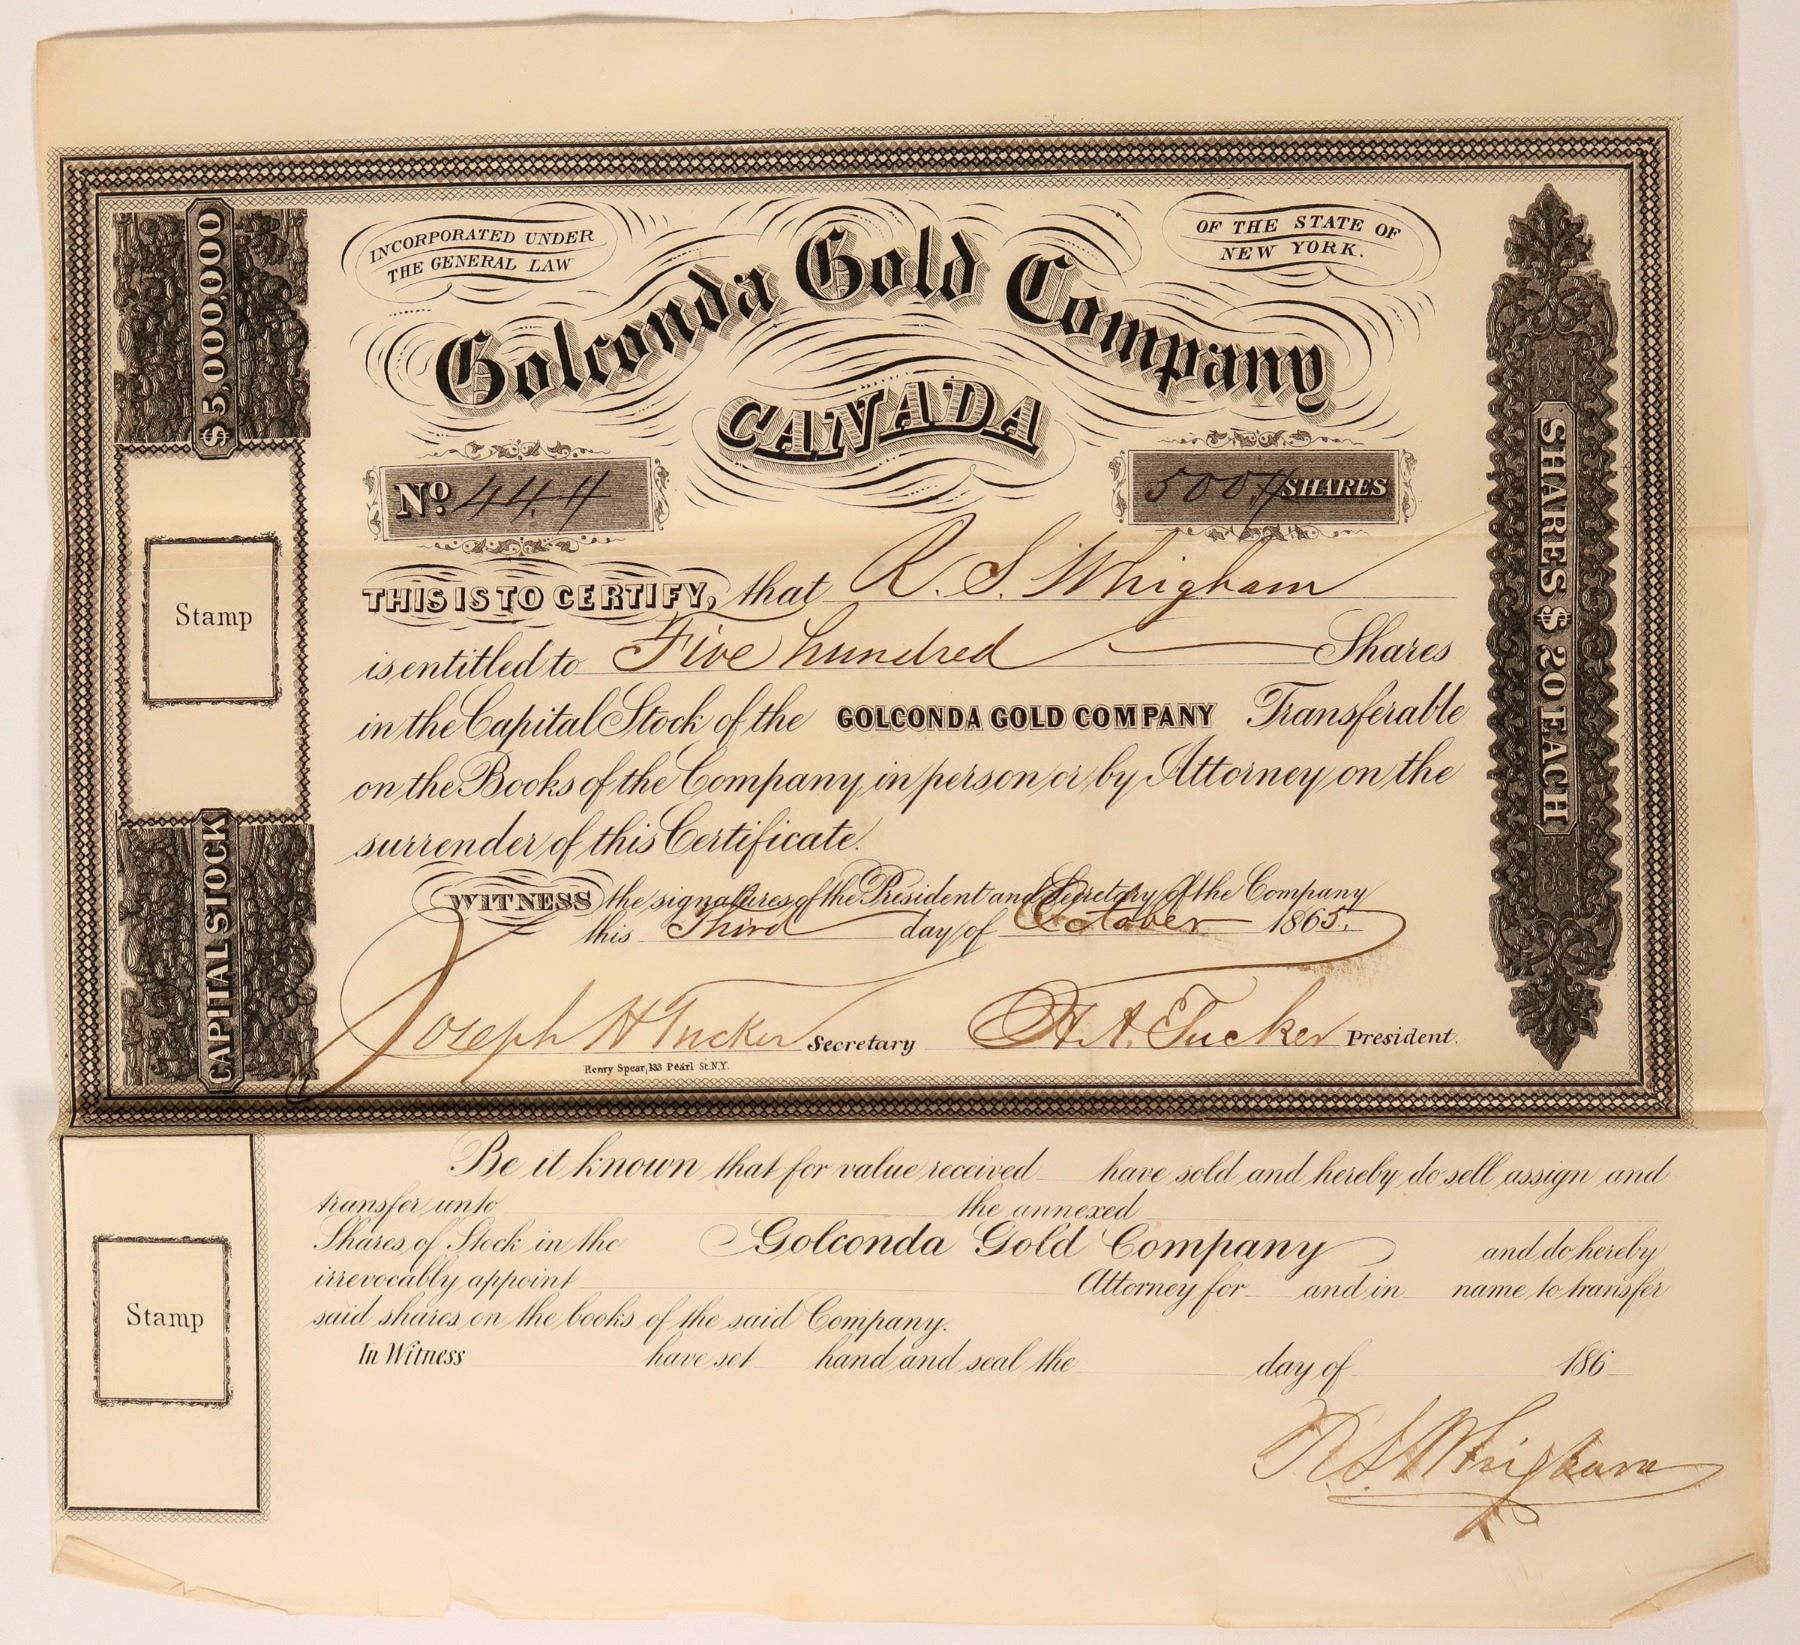 INCORPORATED UNDER
THE GENERAL LAW
OF THE STATE OF
NEW YORK.
Golconda Gold Company
CANADA
$5,000,000
CAPITAL STOCK
SHARES $20 EACH
No. 44
500 SHARES
Stamp
THIS IS TO CERTIFY, that R. S. Whigham
is entitled to Five hundred Shares
in the Capital Stock of the GOLCONDA GOLD COMPANY Transferable
on the Books of the Company in person or by Attorney on the
surrender of this Certificate.
WITNESS the signatures of the President and Secretary of the Company
this Third day of October 1865.
Joseph H Tucker Secretary H. A. Tucker President.
Henry Spear, 133 Pearl St. N.Y.
Be it known that for value received have sold and hereby do sell assign and
transfer unto the annexed
Shares of Stock in the Golconda Gold Company and do hereby
irrevocably appoint Attorney for and in name to transfer
said shares on the books of the said Company.
In Witness have set hand and seal the day of 186
Stamp
R. S. Whigham